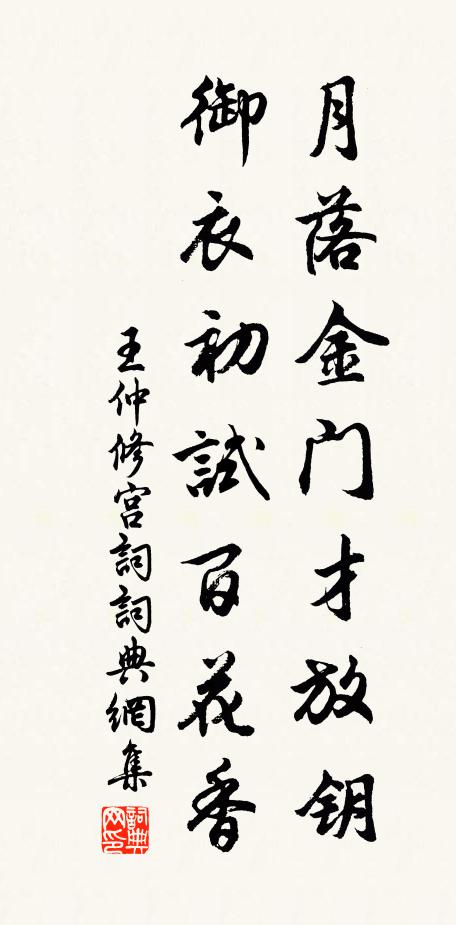 月落金門才放鑰
御衣初試百花香
王仲修宮詞詞典網集
詞典网印